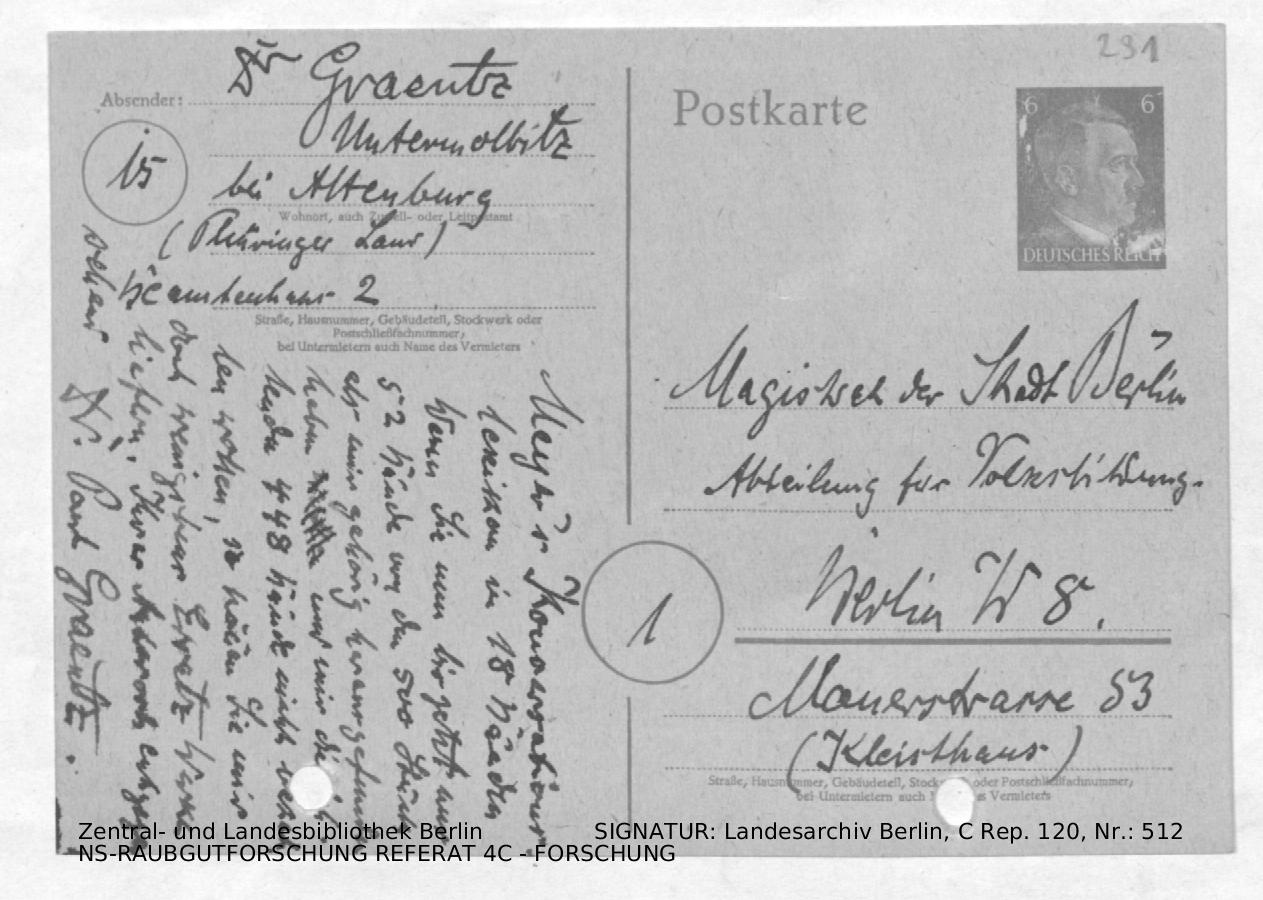 291
Absender:
Dr Graentz
Untermolbitz
15
bei Altenburg
Wohnort, auch Zustell- oder Leitpostamt
(Thüringer Land)
Beamtenhaus 2
Straße, Hausnummer, Gebäudeteil, Stockwerk oder
Postschließfachnummer,
bei Untermietern auch Name des Vermieters
Meyer's Konversations-
lexikon in 18 Bänden
Wenn Sie nun bis jetzt nur
52 Bände von den 500 Stück
als mir gehörig herausgefunden
haben und mir die
448 Bände nicht
wollen, so Sie mir
doch wenigstens Ersatz
liefern. Ihrer Antwort
sehend
Dr. Paul Graentz.
Postkarte
6 6
DEUTSCHES REICH
Magistrat der Stadt Berlin
Abteilung für Volksbildung.
Berlin W 8.
1
Mauerstrasse 53
(Kleisthaus)
Straße, Hausnummer, Gebäudeteil, Stockwerk oder Postschließfachnummer,
bei Untermietern auch Name des Vermieters
Zentral- und Landesbibliothek Berlin
SIGNATUR: Landesarchiv Berlin, C Rep. 120, Nr.: 512
NS-RAUBGUTFORSCHUNG REFERAT 4C - FORSCHUNG